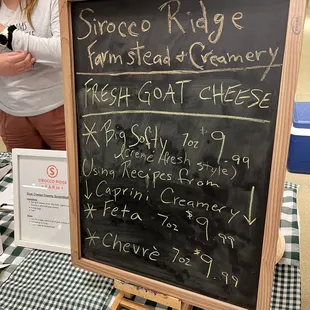 Sirocco Ridge
Farmstead + Creamery
FRESH GOAT CHEESE
* Big Softy 7oz $9.99
(crème fresh style)
Using Recipes from
↓ Caprini Creamery ↓
* Feta 7oz $9.99
* Chevrè 7oz $9.99
S
SIROCCO RIDGE
FARM